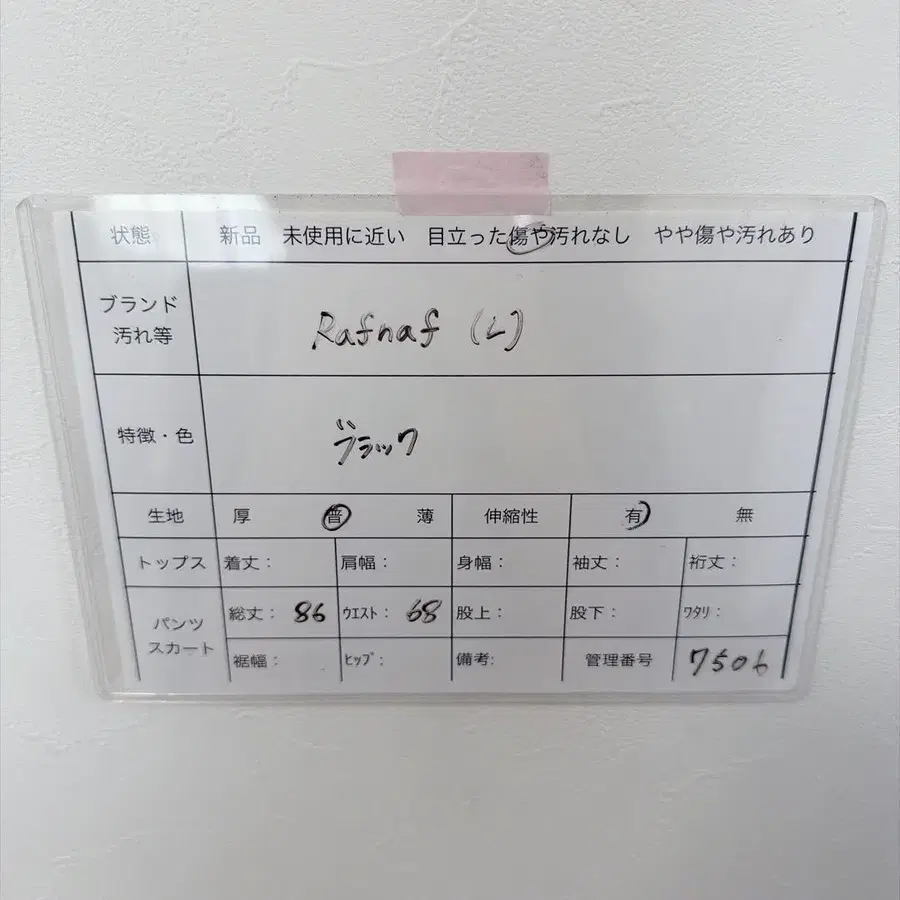 状態 新品 未使用に近い 目立った傷や汚れなし やや傷や汚れあり
ブランド
汚れ等
Rafnaf (L)
特徴・色 ブラック
生地 厚 普 薄 伸縮性 有 無
トップス 着丈： 肩幅： 身幅： 袖丈： 裄丈：
パンツ
スカート
総丈： 86 ウエスト： 68 股上： 股下： ワタリ：
裾幅： ヒップ： 備考: 管理番号 7506